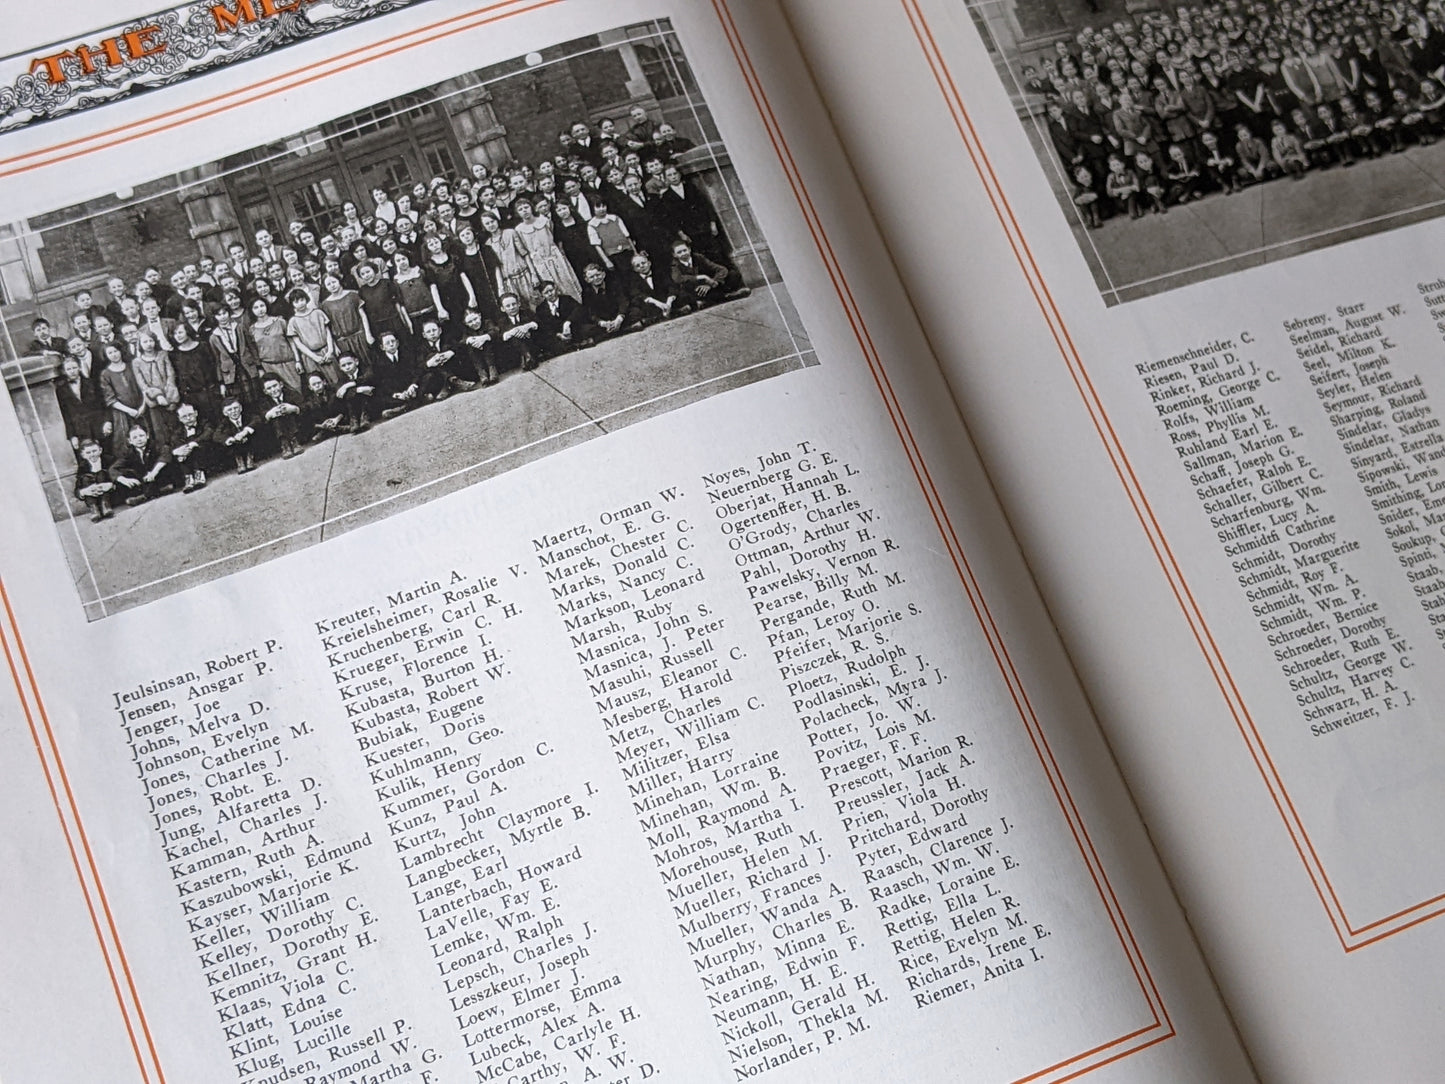 THE
Jeulsinsan, Robert P.
Jensen, Ansgar P.
Jenger, Joe
Johns, Melva D.
Johnson, Evelyn
Jones, Catherine M.
Jones, Charles J.
Jones, Robt. E.
Jung, Alfaretta D.
Kachel, Charles J.
Kamman, Arthur
Kastern, Ruth A.
Kaszubowski, Edmund
Kayser, Marjorie K.
Keller, William
Kelley, Dorothy C.
Kellner, Dorothy E.
Kemnitz, Grant H.
Klaas, Viola C.
Klatt, Edna C.
Klint, Louise
Klug, Lucille
Knudsen, Russell P.
Raymond W.
Martha G.
F.
Kreuter, Martin A.
Kreielsheimer, Rosalie V.
Kruchenberg, Carl R.
Krueger, Erwin C. H.
Kruse, Florence I.
Kubasta, Burton H.
Kubasta, Robert W.
Bubiak, Eugene
Kuester, Doris
Kuhlmann, Geo.
Kulik, Henry
Kummer, Gordon C.
Kunz, Paul A.
Kurtz, John
Lambrecht Claymore I.
Langbecker, Myrtle B.
Lange, Earl
Lanterbach, Howard
LaVelle, Fay E.
Lemke, Wm. E.
Leonard, Ralph
Lepsch, Charles J.
Lesszkeur, Joseph
Loew, Elmer J.
Lottermorse, Emma
Lubeck, Alex A.
McCabe, Carlyle H.
Carthy, W. F.
A. W.
D.
Maertz, Orman W.
Manschot, E. G.
Marek, Chester C.
Marks, Donald C.
Marks, Nancy C.
Markson, Leonard
Marsh, Ruby
Masnica, John S.
Masnica, J. Peter
Masuhi, Russell
Mausz, Eleanor C.
Mesberg, Harold
Metz, Charles
Meyer, William C.
Militzer, Elsa
Miller, Harry
Minehan, Lorraine
Minehan, Wm. B.
Moll, Raymond A.
Mohros, Martha I.
Morehouse, Ruth
Mueller, Helen M.
Mueller, Richard J.
Mulberry, Frances
Mueller, Wanda A.
Murphy, Charles B.
Nathan, Minna E.
Nearing, Edwin F.
Neumann, H. E.
Nickoll, Gerald H.
Nielson, Thekla M.
Norlander, P. M.
Noyes, John T.
Neuernberg G. E.
Oberjat, Hannah L.
Ogertenffer, H. B.
O'Grody, Charles
Ottman, Arthur W.
Pahl, Dorothy H.
Pawelsky, Vernon R.
Pearse, Billy M.
Pergande, Ruth M.
Pfan, Leroy O.
Pfeifer, Marjorie S.
Piszczek, R. S.
Ploetz, Rudolph
Podlasinski, E. J.
Polacheck, Myra J.
Potter, Jo. W.
Povitz, Lois M.
Praeger, F. F.
Prescott, Marion R.
Preussler, Jack A.
Prien, Viola H.
Pritchard, Dorothy
Pyter, Edward
Raasch, Clarence J.
Raasch, Wm. W.
Radke, Loraine E.
Rettig, Ella L.
Rettig, Helen R.
Rice, Evelyn M.
Richards, Irene E.
Riemer, Anita I.
Riemenschneider, C.
Riesen, Paul D.
Rinker, Richard J.
Roeming, George C.
Rolfs, William
Ross, Phyllis M.
Ruhland Earl E.
Sallman, Marion E.
Schaff, Joseph G.
Schaefer, Ralph E.
Schaller, Gilbert C.
Scharfenburg, Wm.
Shiffler, Lucy A.
Schmidtfi Cathrine
Schmidt, Dorothy
Schmidt, Marguerite
Schmidt, Roy F.
Schmidt, Wm. A.
Schmidt, Wm. P.
Schroeder, Bernice
Schroeder, Dorothy
Schroeder, Ruth E.
Schultz, George W.
Schultz, Harvey C.
Schwarz, H. A.
Schweitzer, F. J.
Sebreny, Starr
Seelman, August W.
Seidel, Richard
Seel, Milton K.
Seifert, Joseph
Seyler, Helen
Seymour, Richard
Sharping, Roland
Sindelar, Gladys
Sindelar, Nathan
Sinyard, Estrella
Sipowski,
Smith, Lewis
Smithing,
Snider,
Sokol,
Soukup,
Spinti,
Staab,
Staab,